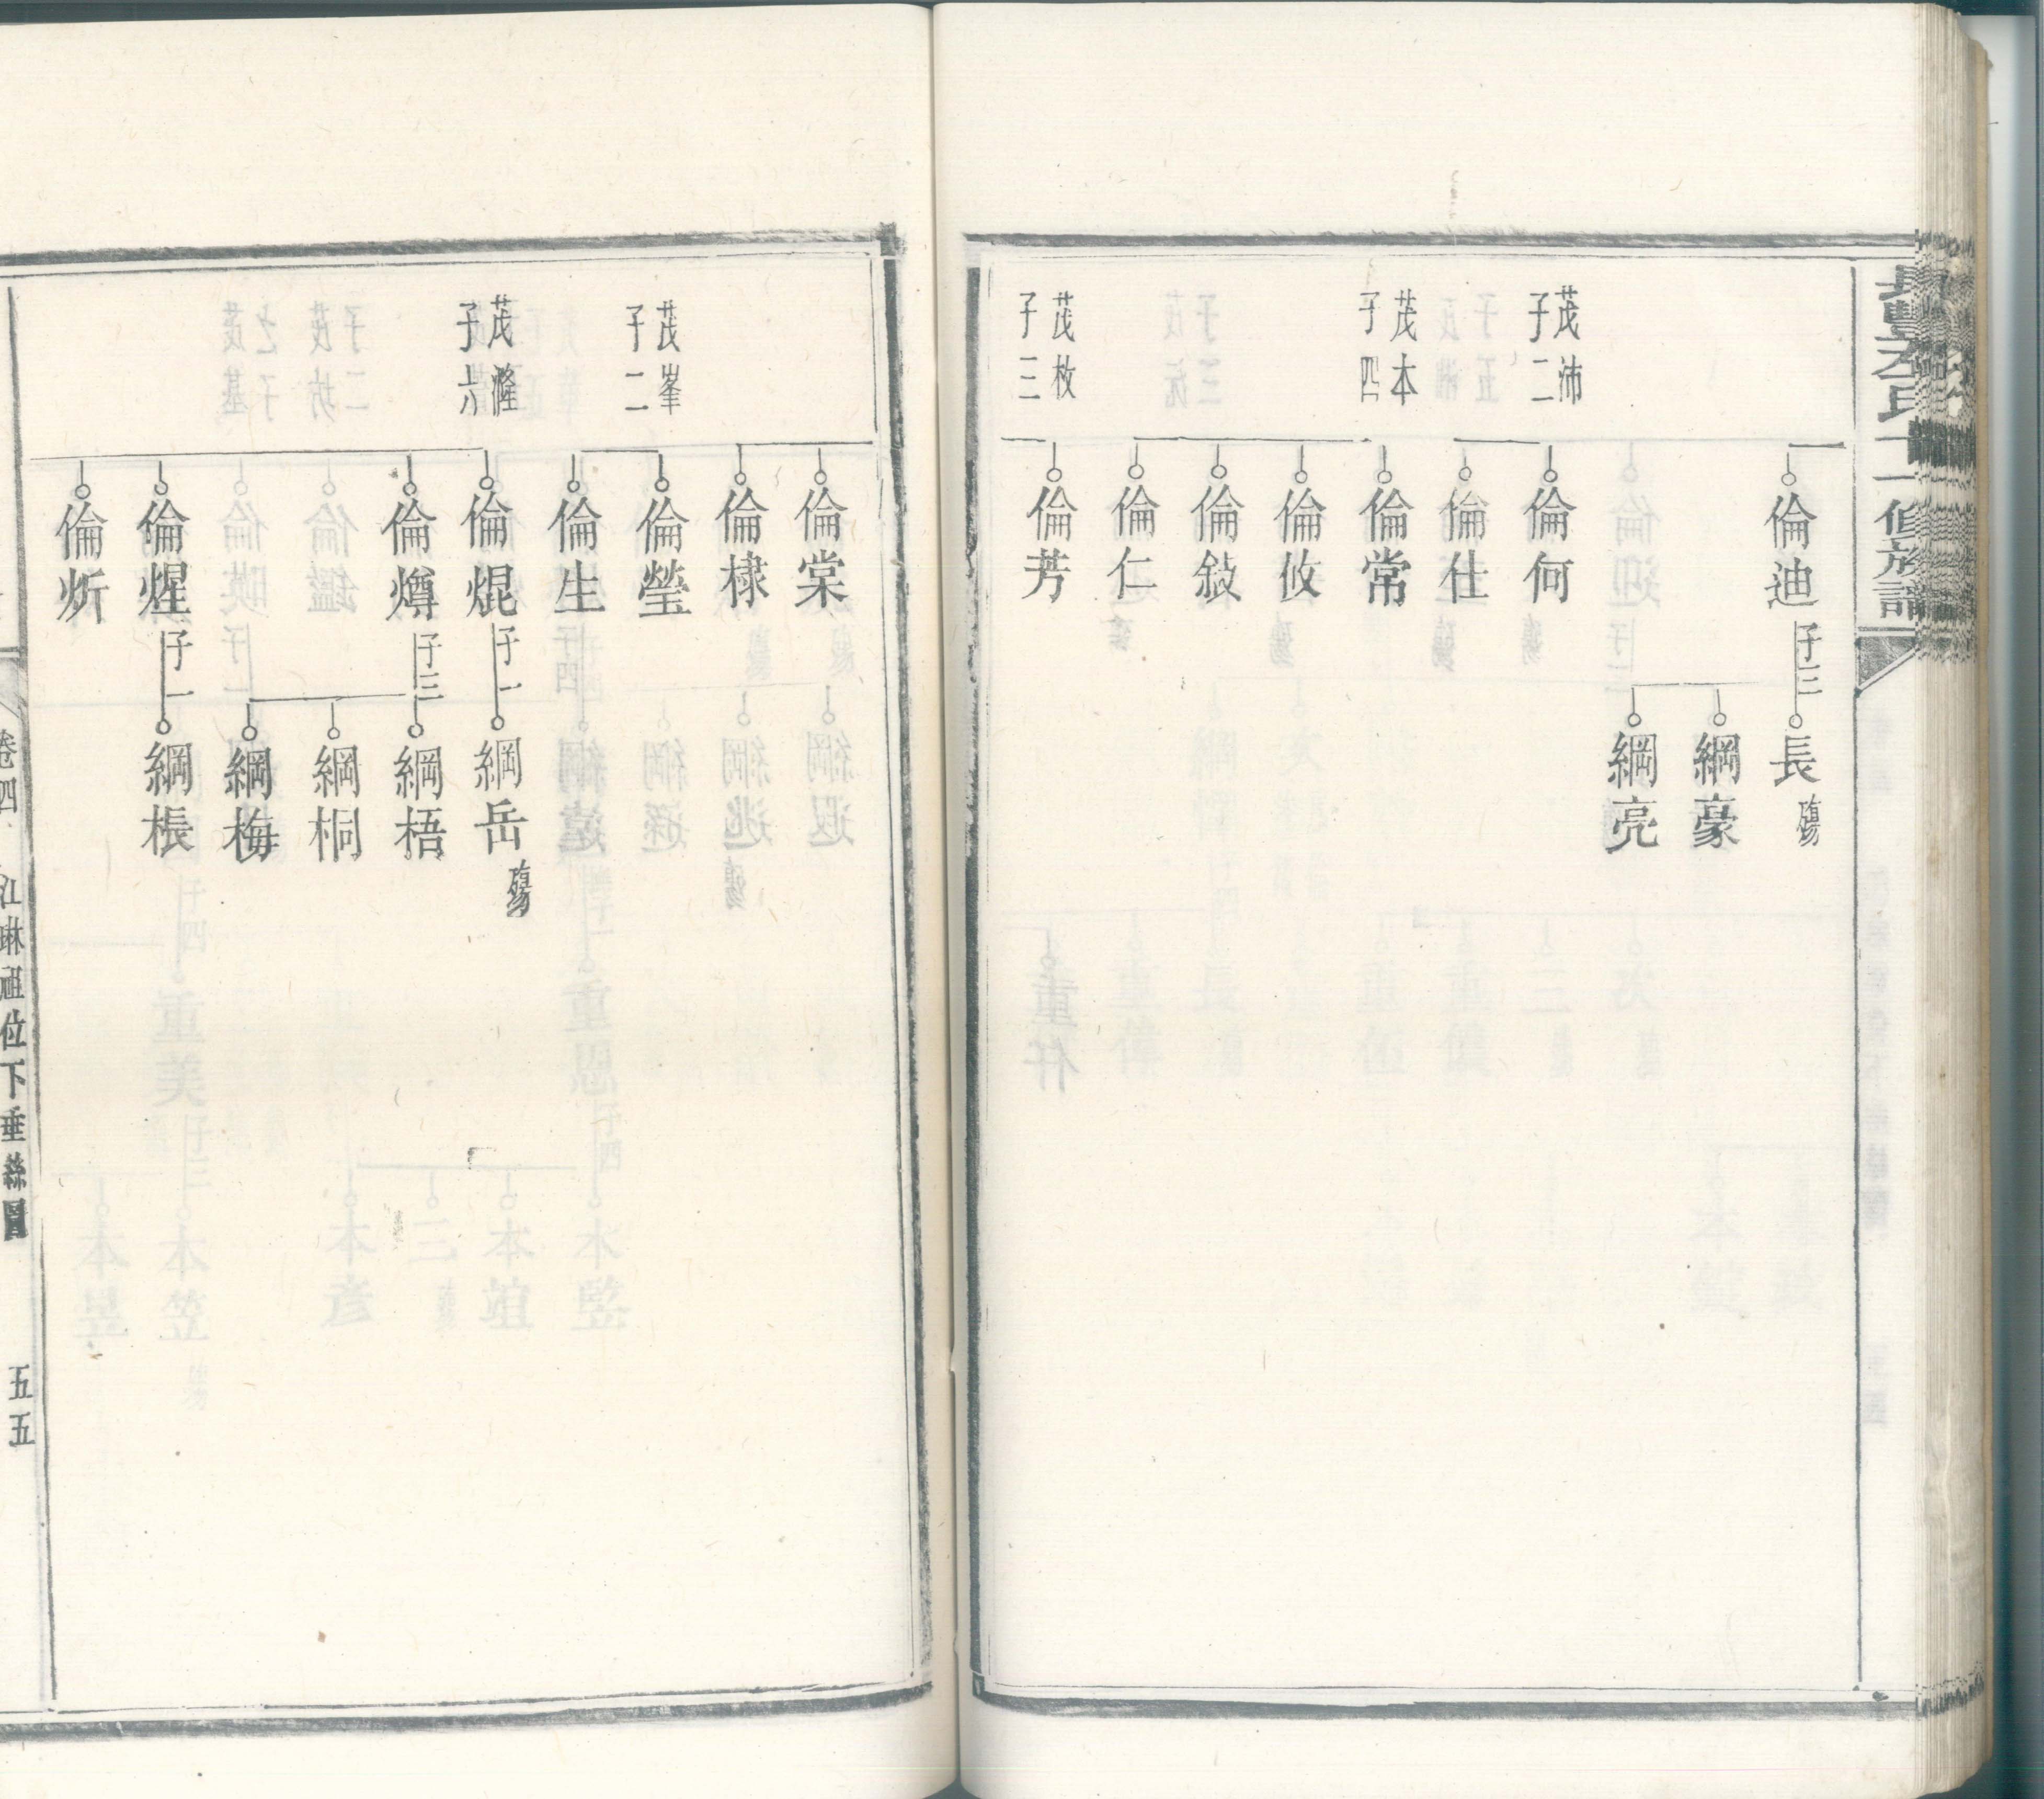 倫迪 子三
長 殤
綱豪
綱亮
茂沛
子二
倫何
倫仕
茂本
子四
倫常
倫攸
倫敍
倫仁
茂枚
子三
倫芳
倫棠
倫棣
茂峯
子二
倫瑩
倫生
茂漋
子六
倫焜 子一
綱岳 殤
倫燇 子三
綱梧
綱桐
綱梅
倫煋 子一
綱棖
倫炘
卷四
江琳祖位下垂絲圖
五五